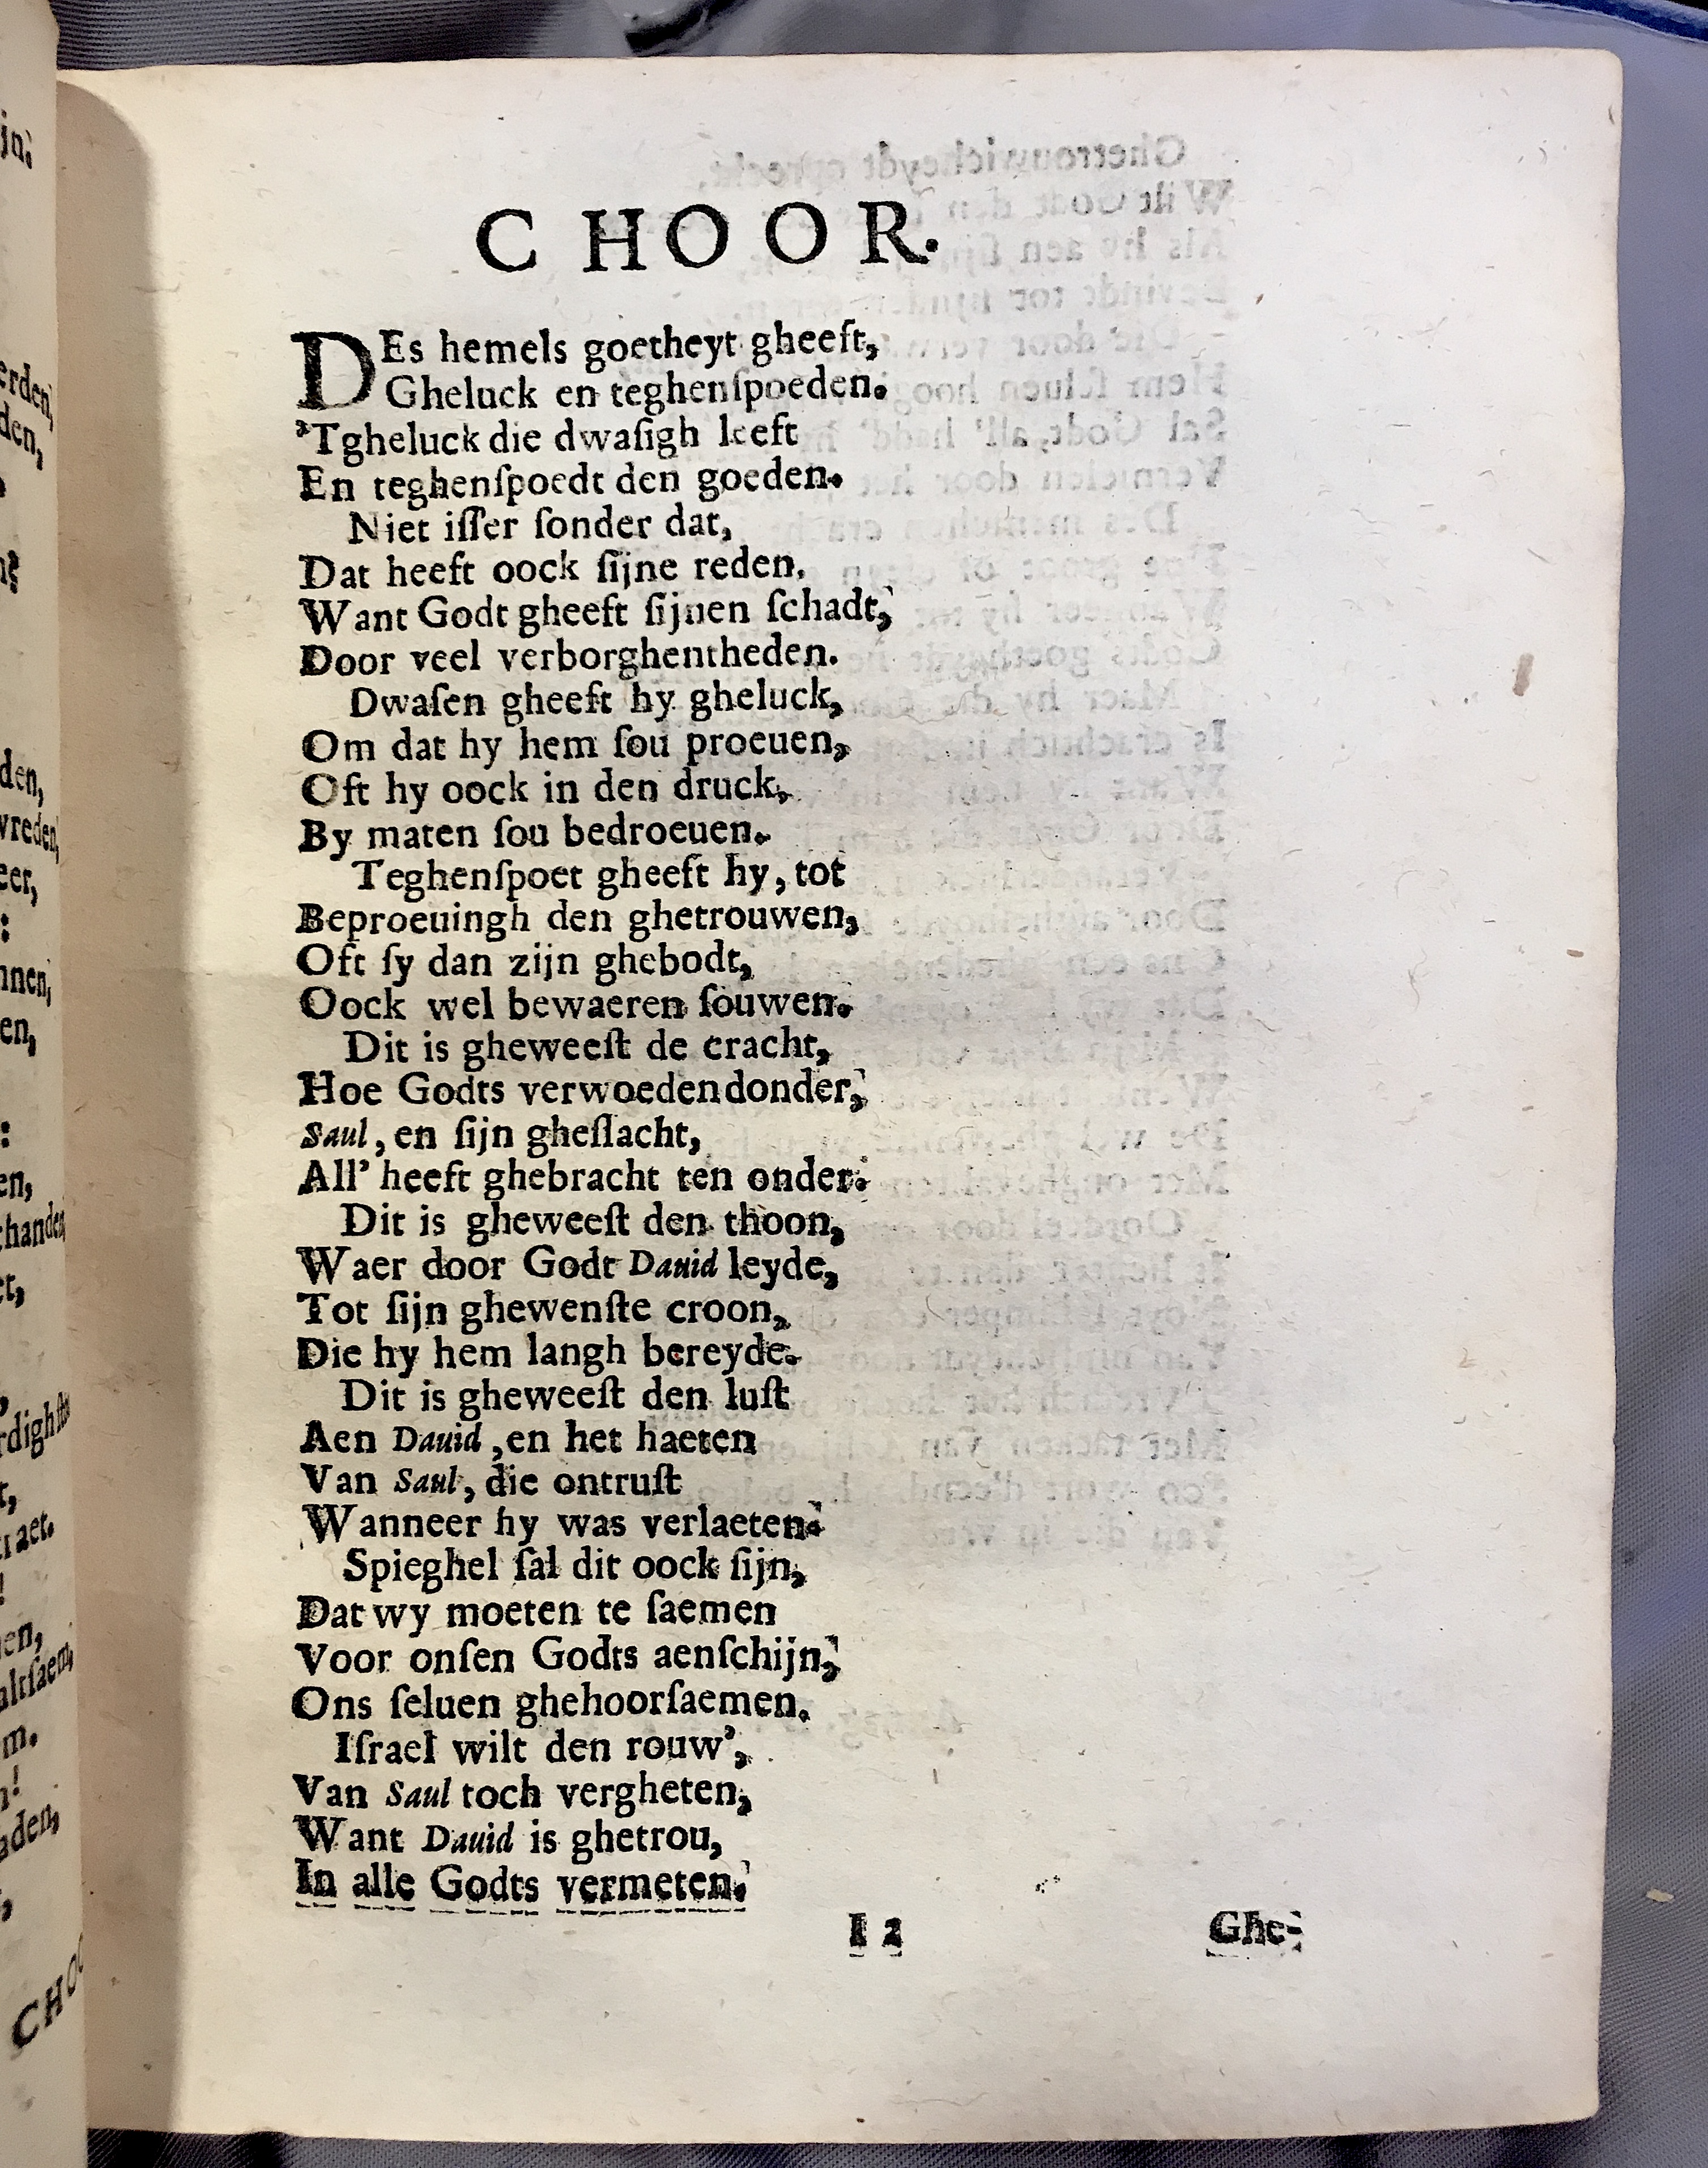 CHOOR.
DEs hemels goetheyt gheeft,
Gheluck en teghenſpoeden.
'Tgheluck die dwaſigh leeft
En teghenſpoedt den goeden.
Niet iſſer ſonder dat,
Dat heeft oock ſijne reden.
Want Godt gheeft ſijnen ſchadt,
Door veel verborghentheden.
Dwaſen gheeft hy gheluck,
Om dat hy hem ſou proeuen,
Oft hy oock in den druck,
By maten ſou bedroeuen.
Teghenſpoet gheeft hy, tot
Beproeuingh den ghetrouwen,
Oft ſy dan zijn ghebodt,
Oock wel bewaeren ſouwen.
Dit is gheweeſt de cracht,
Hoe Godts verwoeden donder,
Saul, en ſijn gheſlacht,
All' heeft ghebracht ten onder:
Dit is gheweeſt den thoon,
Waer door Godt Dauid leyde,
Tot ſijn ghewenſte croon,
Die hy hem langh bereyde.
Dit is gheweeſt den luſt
Aen Dauid, en het haeten
Van Saul, die ontruſt
Wanneer hy was verlaeten.
Spieghel ſal dit oock ſijn,
Dat wy moeten te ſaemen
Voor onſen Godts aenſchijn,
Ons ſeluen ghehoorſaemen.
Iſrael wilt den rouw',
Van Saul toch vergheten,
Want Dauid is ghetrou,
In alle Godts vermeten.
I 2
Ghe-